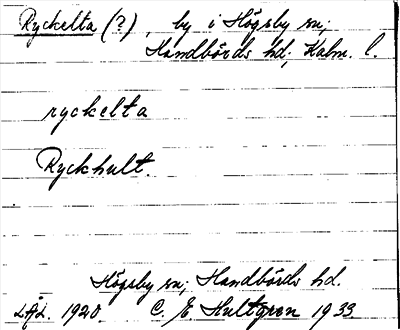 Ryckelta (?), by i Högsby sn;
Handbörds hd; Kalm. l.
ryckelta
Ryckhult.
Högsby sn; Handbörds hd.
1920. C. E. Hultgren 1933